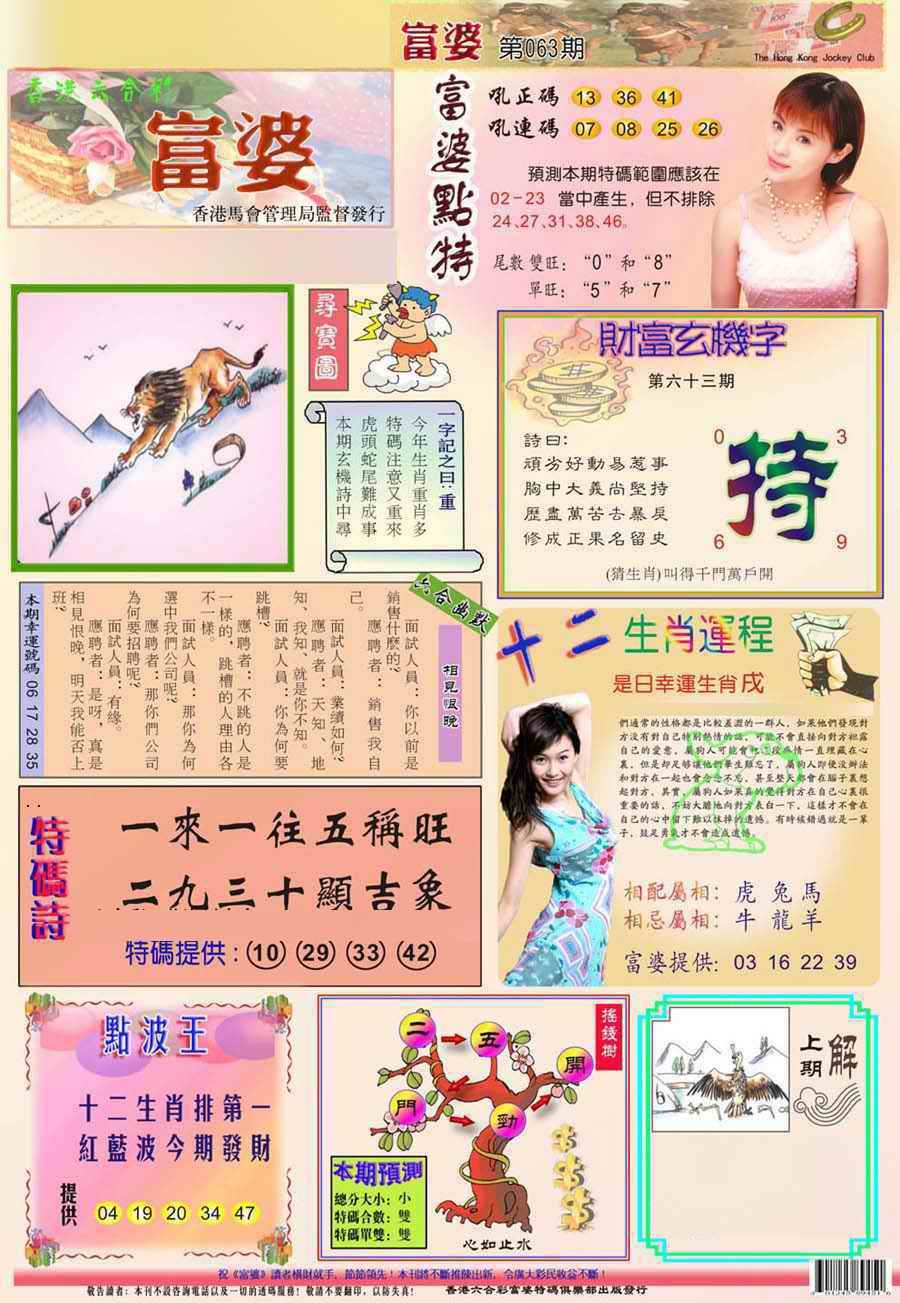 富婆 第063期
The Hong Kong Jockey Club
香港六合彩
富婆
香港馬會管理局監督發行
富婆點特
吼正碼 13 36 41
吼連碼 07 08 25 26
預測本期特碼範圍應該在
02-23 當中產生，但不排除
24、27、31、38、46。
尾數 雙旺：“0”和“8”
單旺：“5”和“7”
尋寶圖
一字記之曰：重
今年生肖重肖多
特碼注意又重來
虎頭蛇尾難成事
本期玄機詩中尋
財富玄機字
第六十三期
詩曰：
頑劣好動易惹事
胸中大義尚堅持
歷盡萬苦去暴戾
修成正果名留史
0 3
持
6 9
(猜生肖)叫得千門萬戶開
六合幽默
相見恨晚
面試人員：你以前是
銷售什麼的？
應聘者：銷售我自
己。
面試人員：業績如何？
應聘者：天知、地
知、我知、就是你不知。
面試人員：你為何要
跳槽？
應聘者：不跳的人是
一樣的，跳槽的人理由各
不一樣。
面試人員：那你為何
選中我們公司呢？
應聘者：那你們公司
為何要招聘呢？
面試人員：有緣。
應聘者：是呀，真是
相見恨晚，明天我能否上
班？
本期幸運號碼 06 17 28 35
十二生肖運程
是日幸運生肖戌
們通常的性格都是比較羞澀的一群人，如果他們發現對
方沒有對自己特別熱情的話，可能不會直接向對方袒露
自己的愛意，屬狗人可能會將這段感情一直埋藏在心
裏，但是卻足够讓他們畢生難忘了，屬狗人即使沒辦法
和對方在一起也會念念不忘，甚至整天都會在腦子裏想
起對方。其實，屬狗人如果真的覺得對方在自己心裏很
重要的話，不妨大膽地向對方表白一下，這樣才不會在
自己的心中留下難以抹掉的遺憾。有時候錯過就是一輩
子，鼓足勇氣才不會造成遺憾。
相配屬相：虎 兔 馬
相忌屬相：牛 龍 羊
富婆提供：03 16 22 39
特碼詩
一來一往五稱旺
二九三十顯吉象
特碼提供：10 29 33 42
點波王
十二生肖排第一
紅藍波今期發財
提供 04 19 20 34 47
搖錢樹
二 五
開
門 勁
本期預測
總分大小：小
特碼合數：雙
特碼單雙：雙
心如止水
上期解
祝《富婆》讀者橫財就手，節節領先！本刊將不斷推陳出新，令廣大彩民收益不斷！
敬告讀者：本刊不設咨詢電話以及一切的透碼服務！敬請不要翻印，以防失真！ 香港六合彩富婆特碼俱樂部出版發行